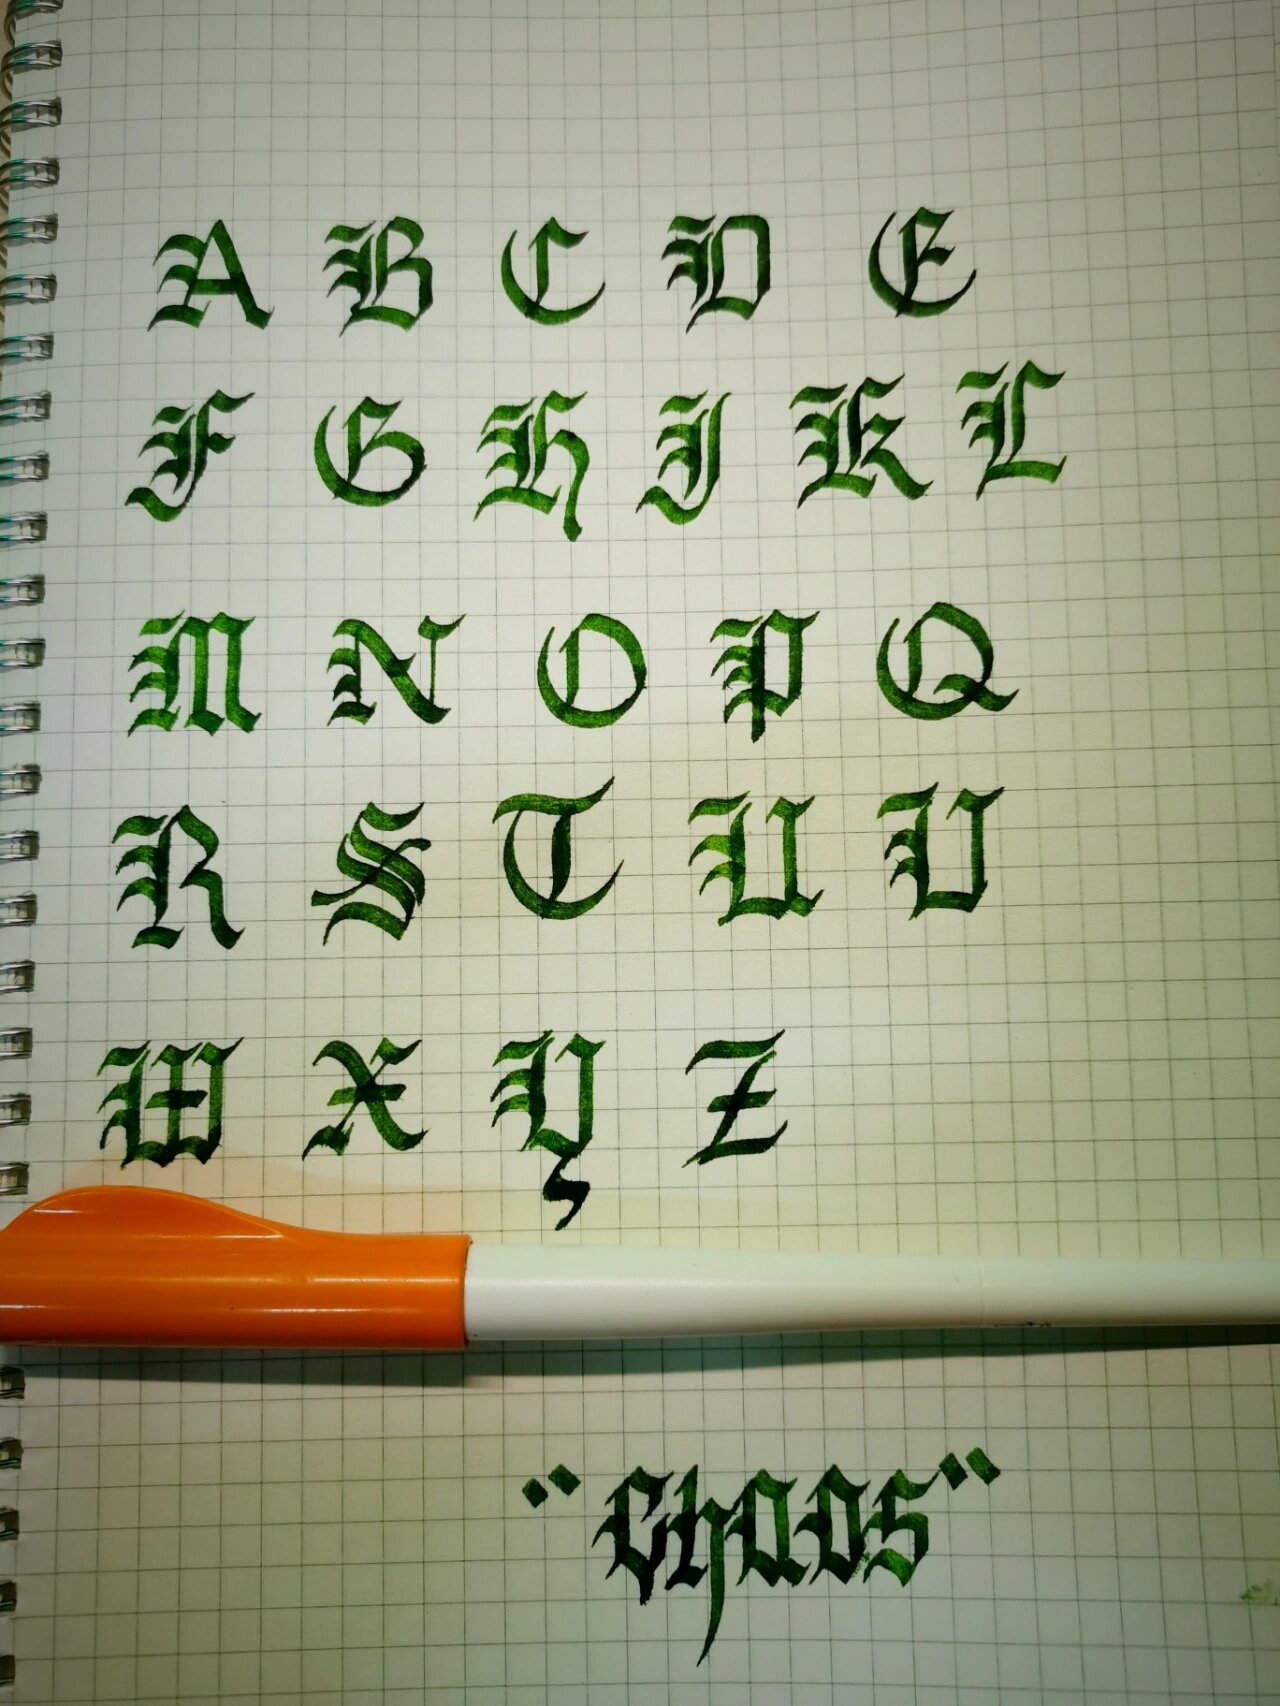 A B C D E
F G H J K L
M N O P Q
R S T U V
W X Y Z
"Chaos"